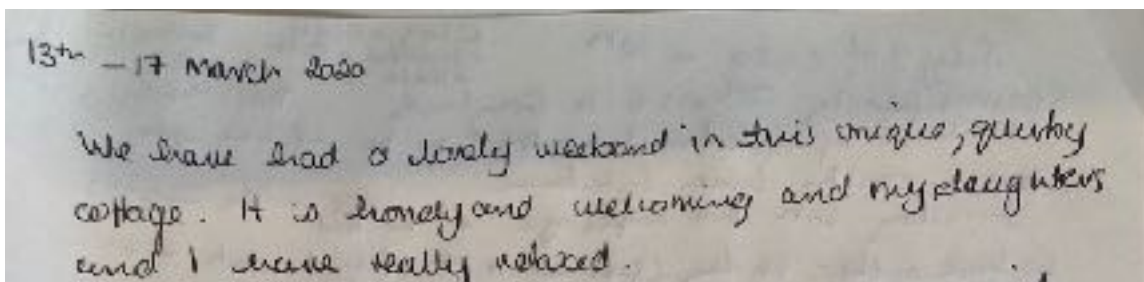 13th - 17 March 2020
We have had a lovely weekend in this unique, quirky
cottage. It is homely and welcoming and my daughters
and I have really relaxed.